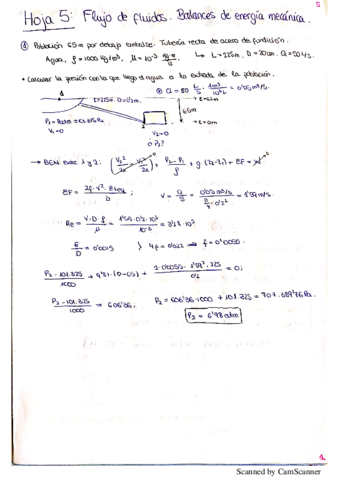 5
Hoja 5: Flujo de fluidos. Balances de energía mecánica.
① Población 65m por debajo embalse. Tubería recta de acero de fundición.
Agua, ρ = 1000 kg/m³, μ = 10⁻³ L = 225m, D = 20cm. Q = 50 L/s.
• Calcular la presión con la que llega el agua a la entrada de la población.
⊛ Q = 50 L/s · 1m³/10³L = 0'05 m³/s.
L=225m, D=0'2m
65m
z=0m
P₁ = Patm = 101.325 Pa
V₁ = 0
V₂ = 0
¿P₂?
→ BEM entre 1 y 2: (V₂²/2α - V₁²/2α) + (P₂-P₁)/ρ + g·(z₂-z₁) + EF = W
EF = 2f·V²·L/D ; V = Q/S = 0'05 m³/s / (π/4 · 0'2²) = 1'59 m/s.
Re = V·D·ρ/μ = 1'59·0'2·10³/10⁻³ = 3'18·10⁵
ε/D = 0'0015 } 4f = 0'022 → f = 0'0055
(P₂ - 101.325)/1000 + 9'81·(0-65) + 2·0'0055·1'59²·225/0'2 = 0;
(P₂ - 101.325)/1000 = 606'36; P₂ = 606'36·1000 + 101.325 = 707.689'76 Pa.
P₂ = 6'98 atm
1
Scanned by CamScanner